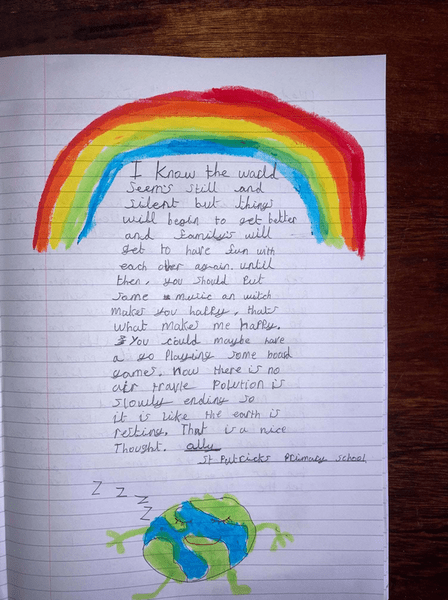 I know the world
seems still and
silent but things
will begin to get better
and family's will
get to have fun with
each other again. until
then, you should put
some music an witch
makes you happy, that's
what makes me happy.
You could maybe have
a go playying some board
games. Now there is no
air travle polution is
slowly ending so
it is like the earth is
resting. That is a nice
Thought. ally
St Patricks Primary School
Z Z Z
Z